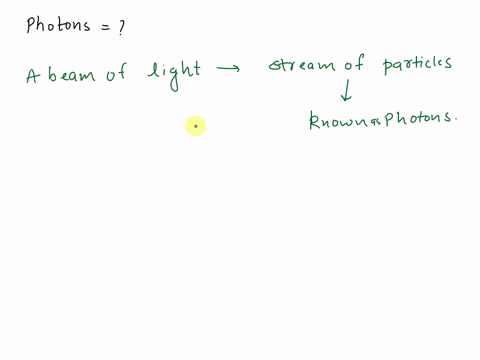 Photons = ?
A beam of light → stream of particles
↓
known as Photons.